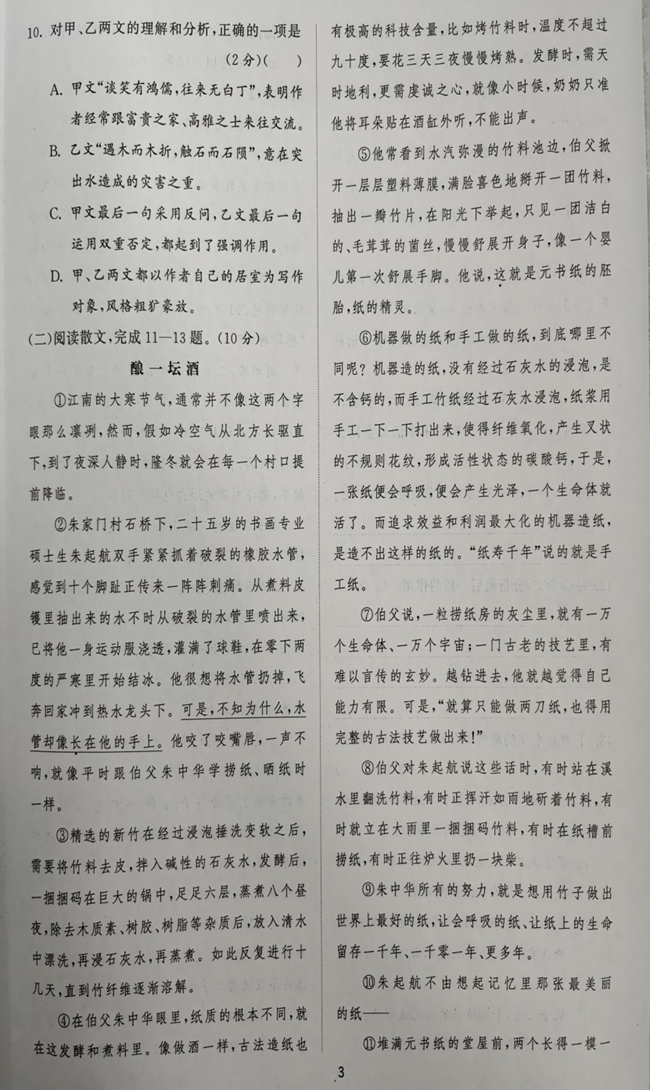 10. 对甲、乙两文的理解和分析,正确的一项是
(2分)(　　)
A. 甲文“谈笑有鸿儒,往来无白丁”,表明作
者经常跟富贵之家、高雅之士来往交流。
B. 乙文“遇木而木折,触石而石陨”,意在突
出水造成的灾害之重。
C. 甲文最后一句采用反问,乙文最后一句
运用双重否定,都起到了强调作用。
D. 甲、乙两文都以作者自己的居室为写作
对象,风格粗犷豪放。
(二)阅读散文,完成11—13题。(10分)
酿一坛酒
①江南的大寒节气,通常并不像这两个字
眼那么凛冽,然而,假如冷空气从北方长驱直
下,到了夜深人静时,隆冬就会在每一个村口提
前降临。
②朱家门村石桥下,二十五岁的书画专业
硕士生朱起航双手紧紧抓着破裂的橡胶水管,
感觉到十个脚趾正传来一阵阵刺痛。从煮料皮
镬里抽出来的水不时从破裂的水管里喷出来,
已将他一身运动服浇透,灌满了球鞋,在零下两
度的严寒里开始结冰。他很想将水管扔掉,飞
奔回家冲到热水龙头下。可是,不知为什么,水
管却像长在他的手上。他咬了咬嘴唇,一声不
响,就像平时跟伯父朱中华学捞纸、晒纸时
一样。
③精选的新竹在经过浸泡捶洗变软之后,
需要将竹料去皮,拌入碱性的石灰水,发酵后,
一捆捆码在巨大的锅中,足足六层,蒸煮八个昼
夜,除去木质素、树胶、树脂等杂质后,放入清水
中漂洗,再浸石灰水,再蒸煮。如此反复进行十
几天,直到竹纤维逐渐溶解。
④在伯父朱中华眼里,纸质的根本不同,就
在这发酵和煮料里。像做酒一样,古法造纸也
有极高的科技含量,比如烤竹料时,温度不超过
九十度,要花三天三夜慢慢烤熟。发酵时,需天
时地利,更需虔诚之心,就像小时候,奶奶只准
他将耳朵贴在酒缸外听,不能出声。
⑤他常看到水汽弥漫的竹料池边,伯父掀
开一层层塑料薄膜,满脸喜色地掰开一团竹料,
抽出一瓣竹片,在阳光下举起,只见一团洁白
的、毛茸茸的菌丝,慢慢舒展开身子,像一个婴
儿第一次舒展手脚。他说,这就是元书纸的胚
胎,纸的精灵。
⑥机器做的纸和手工做的纸,到底哪里不
同呢?机器造的纸,没有经过石灰水的浸泡,是
不含钙的,而手工竹纸经过石灰水浸泡,纸浆用
手工一下一下打出来,使得纤维氧化,产生叉状
的不规则花纹,形成活性状态的碳酸钙,于是,
一张纸便会呼吸,便会产生光泽,一个生命体就
活了。而追求效益和利润最大化的机器造纸,
是造不出这样的纸的。“纸寿千年”说的就是手
工纸。
⑦伯父说,一粒捞纸房的灰尘里,就有一万
个生命体、一万个宇宙;一门古老的技艺里,有
难以言传的玄妙。越钻进去,他就越觉得自己
能力有限。可是,“就算只能做两刀纸,也得用
完整的古法技艺做出来!”
⑧伯父对朱起航说这些话时,有时站在溪
水里翻洗竹料,有时正挥汗如雨地斫着竹料,有
时就立在大雨里一捆捆码竹料,有时在纸槽前
捞纸,有时正往炉火里扔一块柴。
⑨朱中华所有的努力,就是想用竹子做出
世界上最好的纸,让会呼吸的纸、让纸上的生命
留存一千年、一千零一年、更多年。
⑩朱起航不由想起记忆里那张最美丽
的纸——
⑪堆满元书纸的堂屋前,两个长得一模一
3